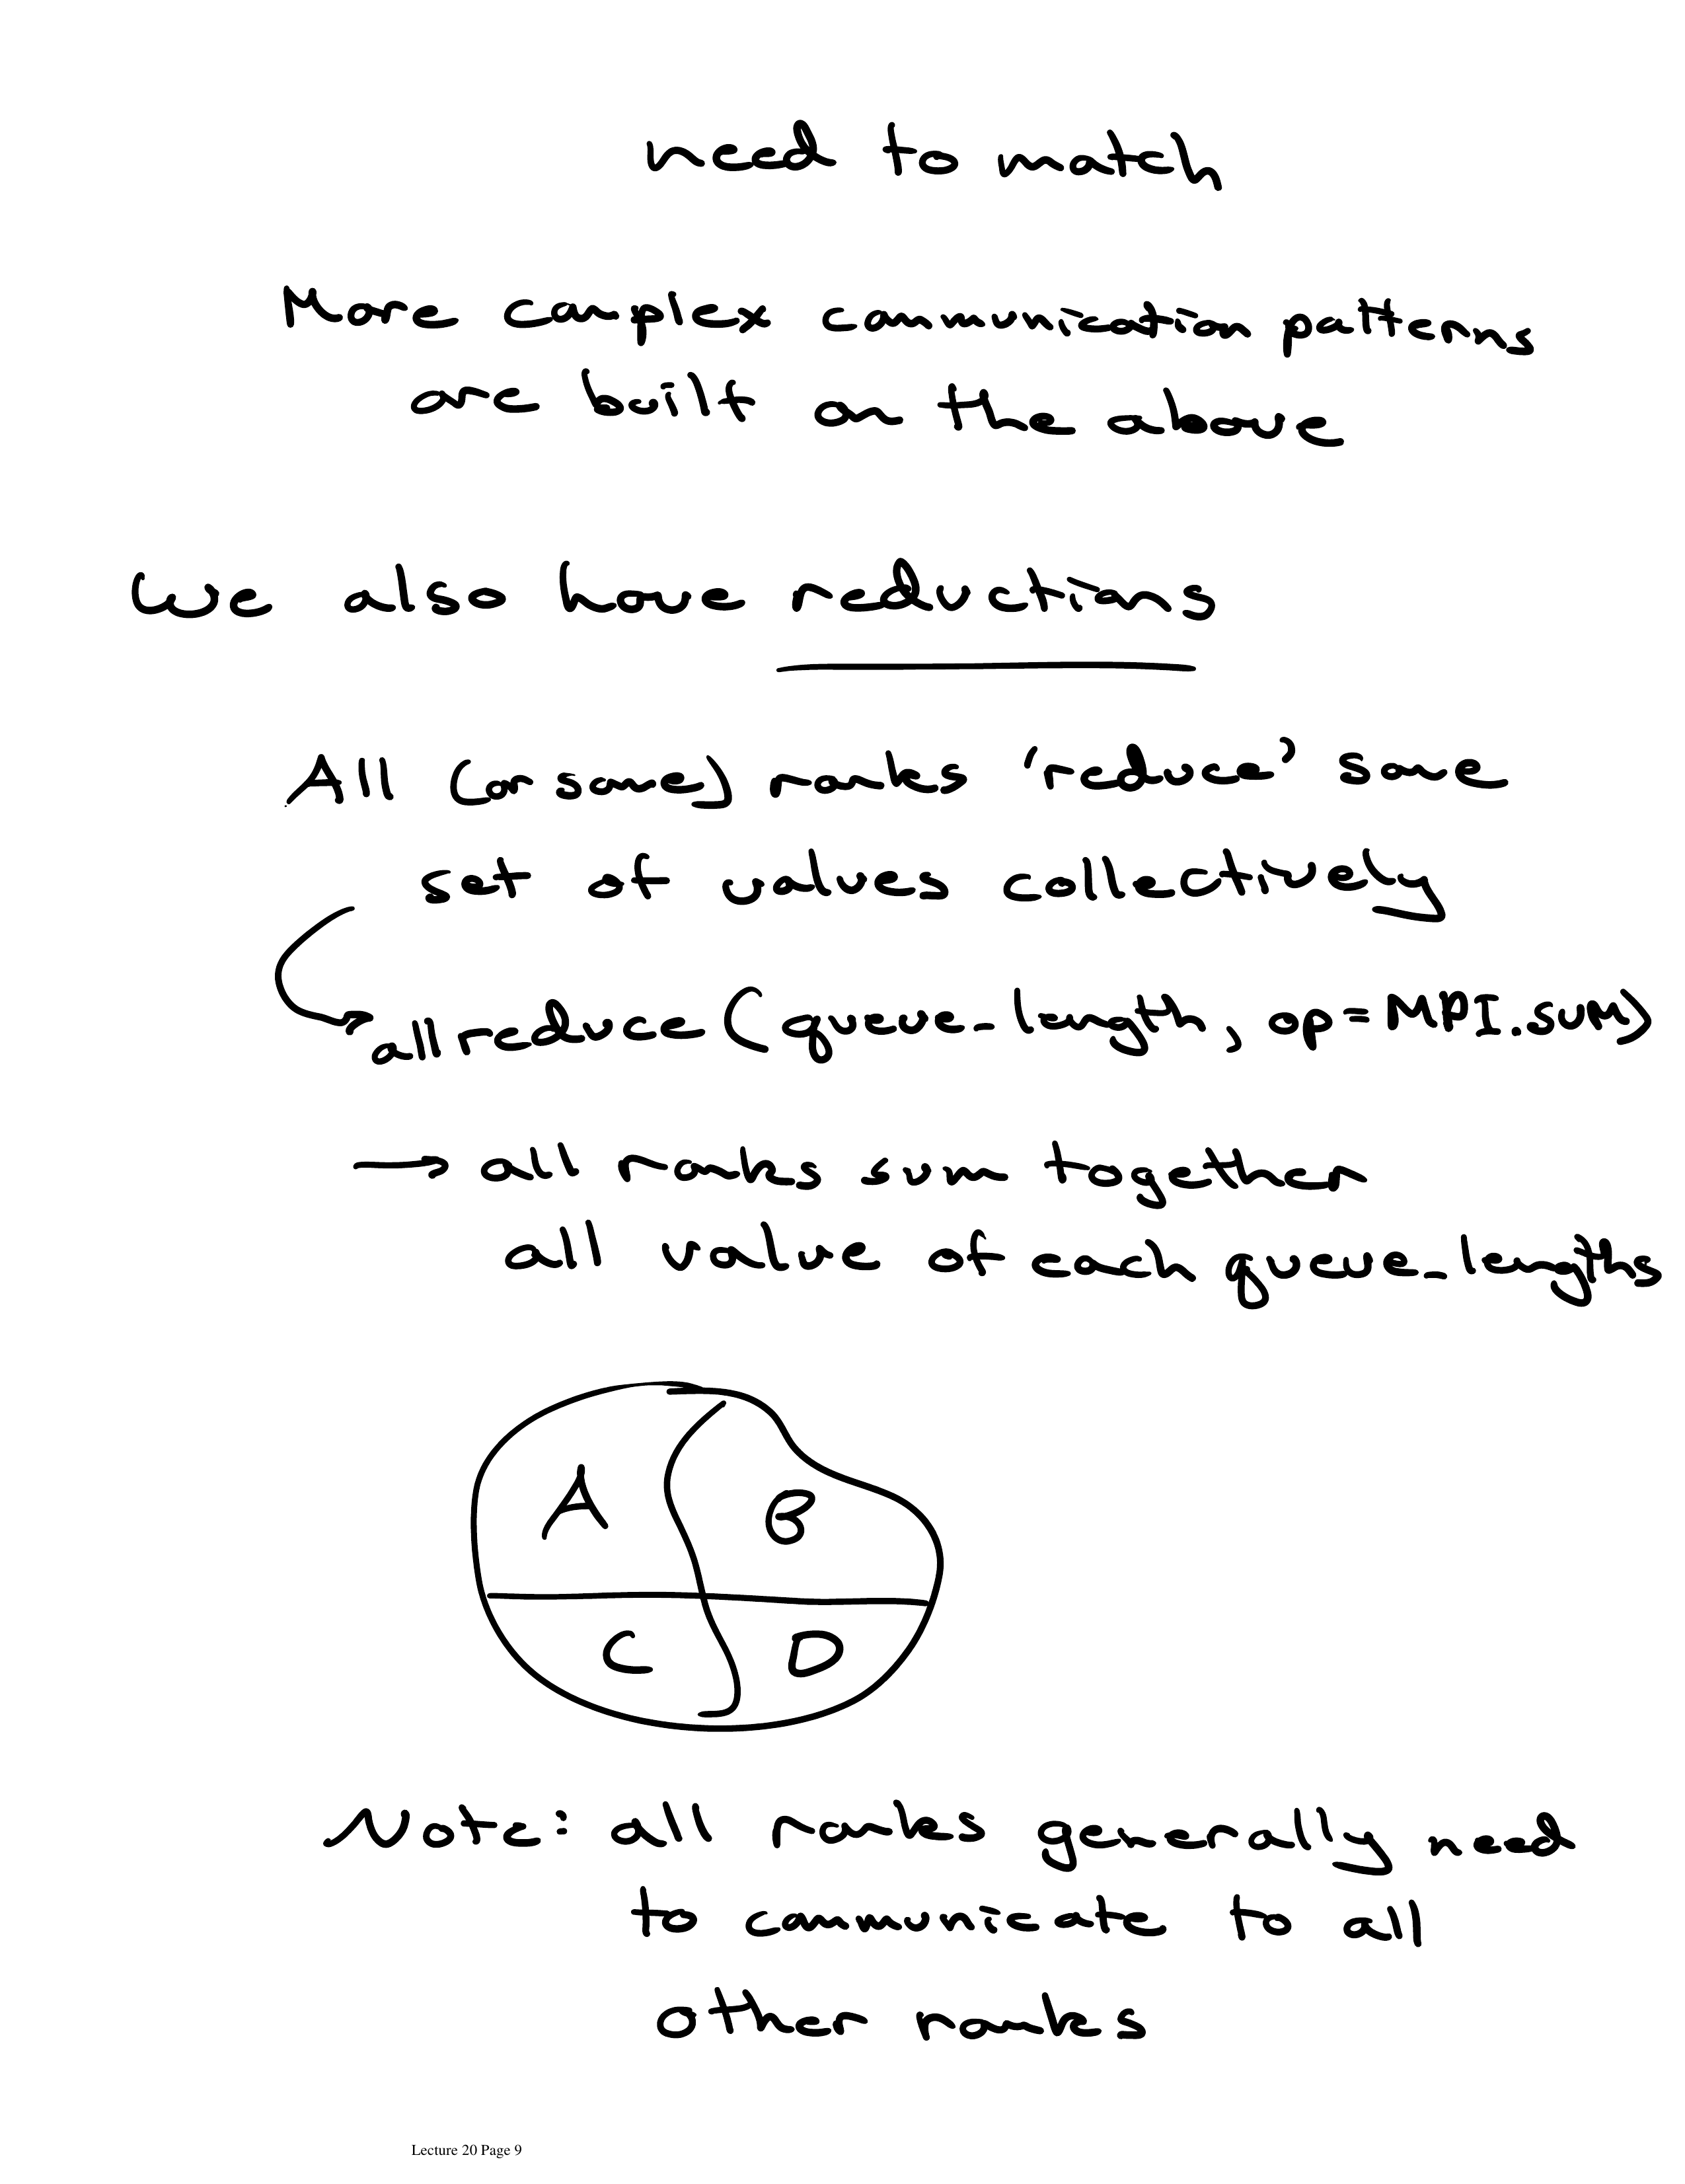 need to match
More complex communication patterns
are built on the above
We also have reductions
All (or some) ranks 'reduce' some
set of values collectively
allreduce (queue_length, op=MPI.SUM)
→ all ranks sum together
all value of each queue_lengths
A
B
C
D
Note: all ranks generally need
to communicate to all
other ranks
Lecture 20 Page 9